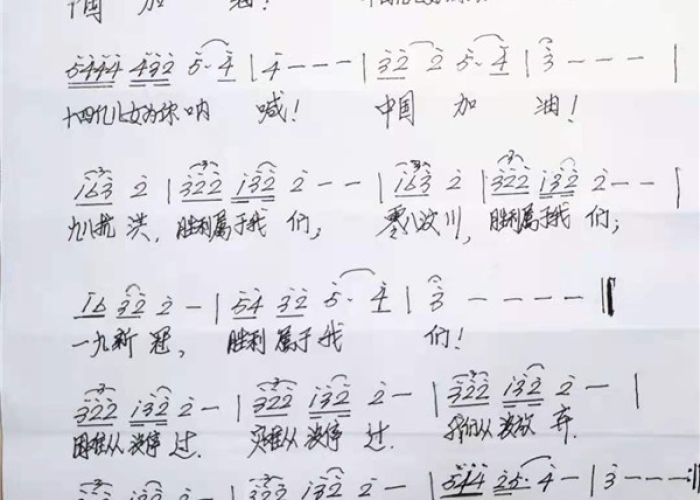 中国 加 油!
5444 432 5·4 | 4 - - - | 32 2 5·4 | 3 - - - |
十四亿儿女为你呐 喊! 中国 加 油!
163 2 | 322 132 2 - - | 163 2 | 322 132 2 - - |
九八抗 洪, 胜利属于我 们; 零八汶川, 胜利属于我 们;
16 32 2 - | 54 32 5·4 | 3 - - - - ‖
一九新 冠, 胜利属于我 们!
322 132 2 - | 322 132 2 - | 322 132 2 - |
困难从没停 过. 灾难从没停 过. 我们从没放 弃.
544 25·4 - | 3 - - - :‖